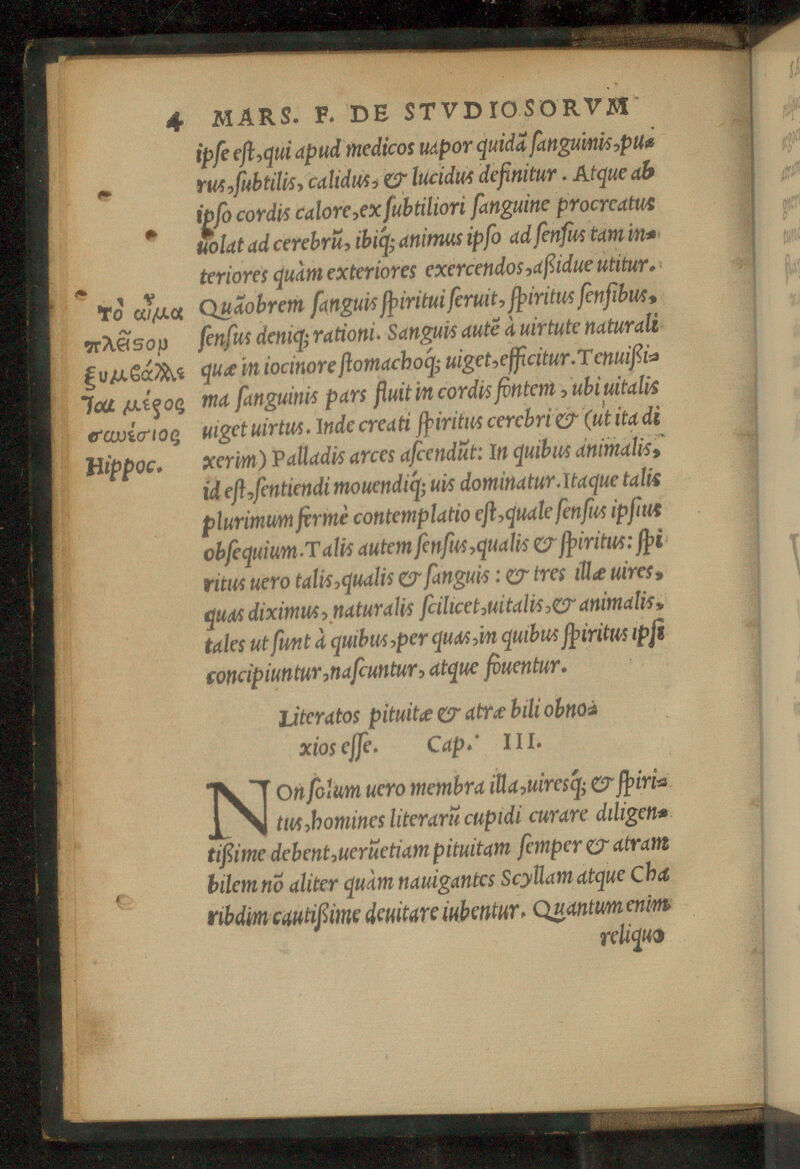 4 MARS. F. DE STVDIOSORVM
ipſe eſt,qui apud medicos uapor quidã ſanguinis,pu=
rus,ſubtilis, calidus, & lucidus definitur . Atque ab
ipſo cordis calore,ex ſubtiliori ſanguine procreatus
uolat ad cerebrũ, ibiq; animus ipſo ad ſenſus tam in=
teriores quàm exteriores exercendos,aßidue utitur.
Quãobrem ſanguis ſpiritui ſeruit, ſpiritus ſenſibus,
ſenſus deniq; rationi. Sanguis autẽ à uirtute naturali
quæ in iocinore ſtomachoq; uiget,efficitur.Tenuißi=
ma ſanguinis pars fluit in cordis fontem , ubi uitalis
uiget uirtus. Inde creati ſpiritus cerebri & (ut ita di
xerim) Palladis arces aſcendũt: In quibus animalis,
id eſt,ſentiendi mouendiq; uis dominatur.Itaque talis
plurimum fermè contemplatio eſt,quale ſenſus ipſius
obſequium.Talis autem ſenſus,qualis & ſpiritus: ſpi
ritus uero talis,qualis & ſanguis : & tres illæ uires,
quas diximus, naturalis ſcilicet,uitalis,& animalis,
tales ut ſunt à quibus,per quas,in quibus ſpiritus ipſi
concipiuntur,naſcuntur, atque fouentur.
τὸ αἷμα
πλεῖσον
ξυμβάλλε
ται μέρος
συνέσιος
Hippoc.
Literatos pituitæ & atræ bili obno=
xios eſſe. Cap. III.
NOn ſolum uero membra illa,uiresq; & ſpiri=
tus,homines literarũ cupidi curare diligen=
tißime debent,uerũetiam pituitam ſemper & atram
bilem nõ aliter quàm nauigantes Scyllam atque Cha
ribdim cautißime deuitare iubentur. Quantum enim
reliquo